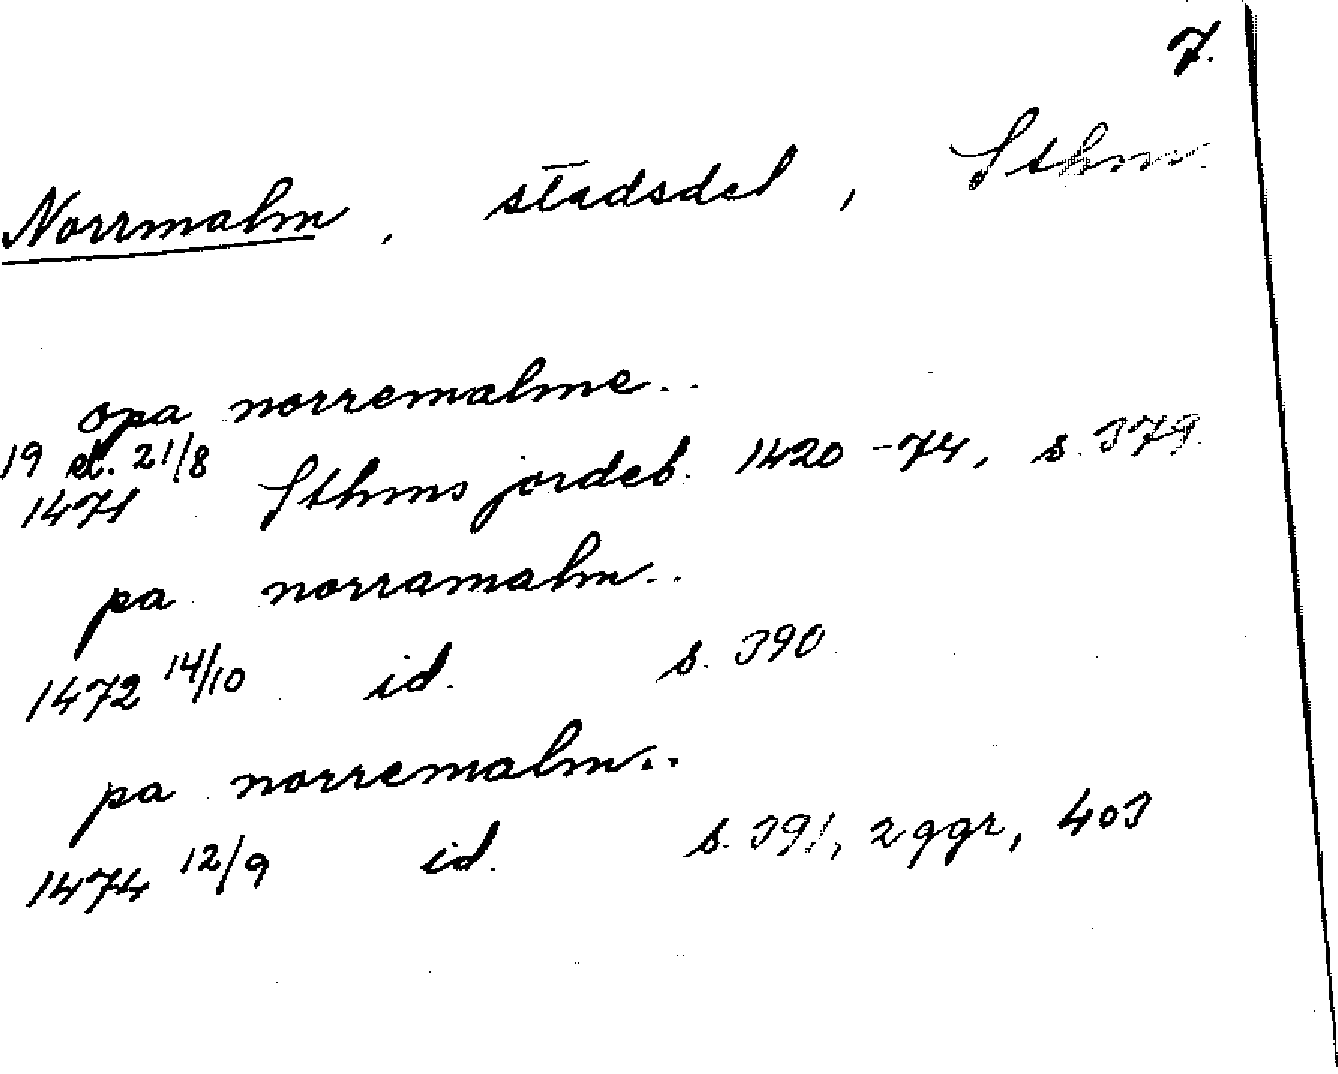 7.
Norrmalm, stadsdel, Sthm.
opa norremalme..
19 el. 21/8
1471 Sthms jordeb. 1420-74, s. 379.
pa norramalm..
1472 14/10 id. s. 390
pa norremalm..
1474 12/9 id. s. 391, 2 ggr, 403